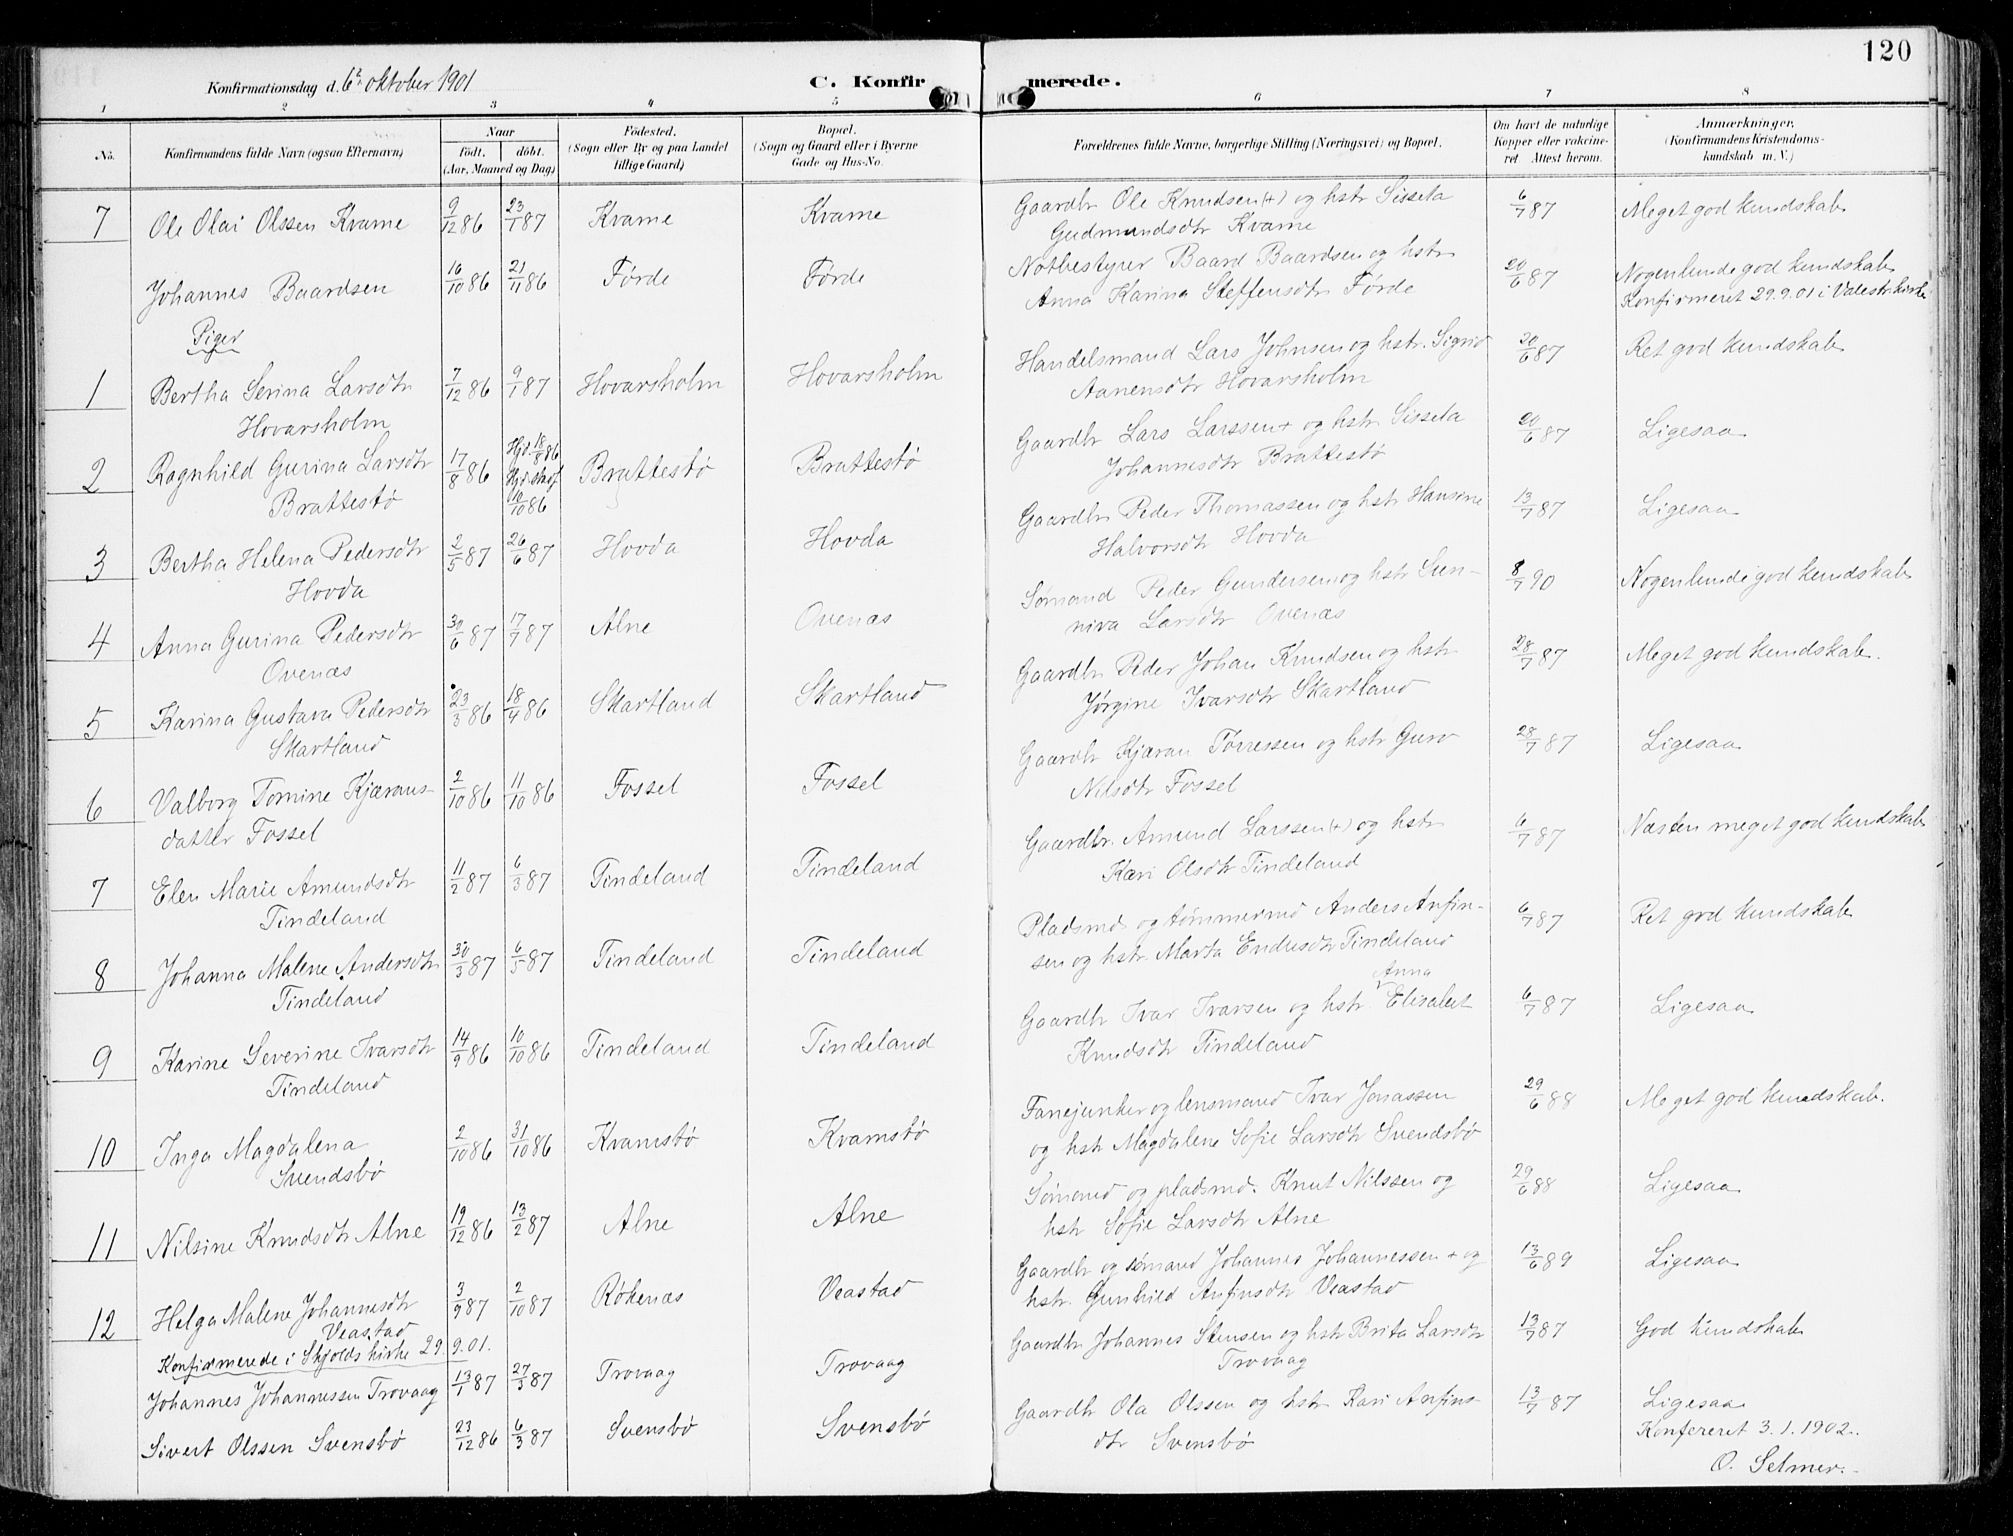 120
Konfirmationsdag d. 6te oktober 1901
C. Konfirmerede.
1 2 3 4 5 6 7 8
No. Konfirmandens fulde Navn (ogsaa Efternavn)
Naar
födt. döbt.
(Aar, Maaned og Dag)
Födested.
(Sogn eller By og paa Landet
tillige Gaard)
Bopæl.
(Sogn og Gaard eller i Byerne
Gade og Hus-No.
Forældrenes fulde Navne, borgerlige Stilling (Næringsvei) og Bopæl.
Om havt de naturlige
Kopper eller vakcine-
ret. Attest herom.
Anmærkninger.
(Konfirmandens Kristendoms-
kundskab m. V.)
7 Ole Olai Olssen Kvame 9/12 86 23/1 87 Kvame Kvame Gaardbr Ole Knudsen (+) og hstr Sisseta 6/7 87 Meget god kundskab
Gudmundsdtr Kvame
Johannes Baardsen 16/10 86 21/11 86 Førde Førde Notbestyrer Baard Baardsen og hstr 20/6 87 Nogenlunde god kundskab
Anna Karina Steffensdtr Førde Konfirmeret 29.9.01 i Valestr. kirke
Piger
1 Bertha Serina Larsdtr 7/12 86 9/1 87 Hovarsholm Hovarsholm Handelsmand Lars Johnsen og hstr. Sigrid 20/6 87 Ret god kundskab
Hovarsholm Aanensdtr Hovarsholm
2 Ragnhild Gurina Larsdtr 17/8 86 Hjd. 18/8 86 Brattestø Brattestø Gaardbr Lars Larssen + og hstr Sisseta 20/6 87 Ligesaa
Brattestø 10/10 86 Johannesdtr Brattestø
3 Bertha Helena Pedersdtr 2/5 87 26/6 87 Hovda Hovda Gaardbr Peder Thomassen og hstr Hansine 13/7 87 Ligesaa
Hovda Halvorsdtr Hovda
4 Anna Gurina Pedersdtr 30/6 87 17/7 87 Alne Ovenæs Sømand Peder Gundersen og hstr Sun- 8/7 90 Nogenlunde god kundskab
Ovenæs niva Larsdtr Ovenæs
5 Karina Gustava Pedersdtr 23/3 86 18/4 86 Skartland Skartland Gaardbr Peder Johan Knudsen og hstr 28/7 87 Meget god kundskab.
Skartland Jørgine Ivarsdtr Skartland
6 Valborg Tomine Kjærans- 2/10 86 11/10 86 Fossel Fossel Gaardbr Kjæran Torressen og hstr Guro 28/7 87 Ligesaa
datter Fossel Nilsdtr Fossel
7 Elen Marie Amundsdtr 11/2 87 6/3 87 Tindeland Tindeland Gaardbr. Amund Larssen (+) og hstr 6/7 87 Næsten meget god kundskab
Tindeland Kari Olsdtr Tindeland
8 Johanna Malene Andersdtr 30/3 87 6/5 87 Tindeland Tindeland Pladsmd og tømmermd Anders Anfin- 6/7 87 Ret god kundskab
Tindeland sen og hstr. Marta Endresdtr Tindeland
9 Karine Severine Ivarsdtr 14/9 86 10/10 86 Tindeland Tindeland Gaardbr Ivar Ivarsen og hstr Anna Elisabet 6/7 87 Ligesaa
Tindeland Knudsdtr Tindeland
10 Inga Magdalena 2/10 86 31/10 86 Kvamsbø Kvamsbø Fanejunker og lensmand Ivar Jonassen 29/6 88 Meget god kundskab.
Svendsbø og hstr Magdalene Sofie Larsdtr Svendsbø
11 Nilsine Knudsdtr Alne 19/12 86 13/2 87 Alne Alne Sømand og pladsmd. Knut Nilssen og 29/6 88 Ligesaa
hstr Sofie Larsdtr Alne
12 Helga Malene Johannesdtr 3/9 87 2/10 87 Røkenæs Veastad Gaardbr og sømand Johannes Johannessen + og 13/6 89 Ligesaa
Veastad hstr. Gunhild Anfinsdtr Veastad
Konfirmerede i Skjolds kirke 29.9.01.
Johannes Johannessen Trovaag 13/1 87 27/3 87 Trovaag Trovaag Gaardbr Johannes Stensen og hstr Brita Larsdtr 13/7 87 God kundskab
Trovaag
Sivert Olssen Svensbø 23/12 86 6/3 87 Svensbø Svensbø Gaardbr Ola Olssen og hstr Kari Anfins- 13/7 87 Ligesaa
dtr Svensbø Konfereret 3.1.1902.
O. Selmer.